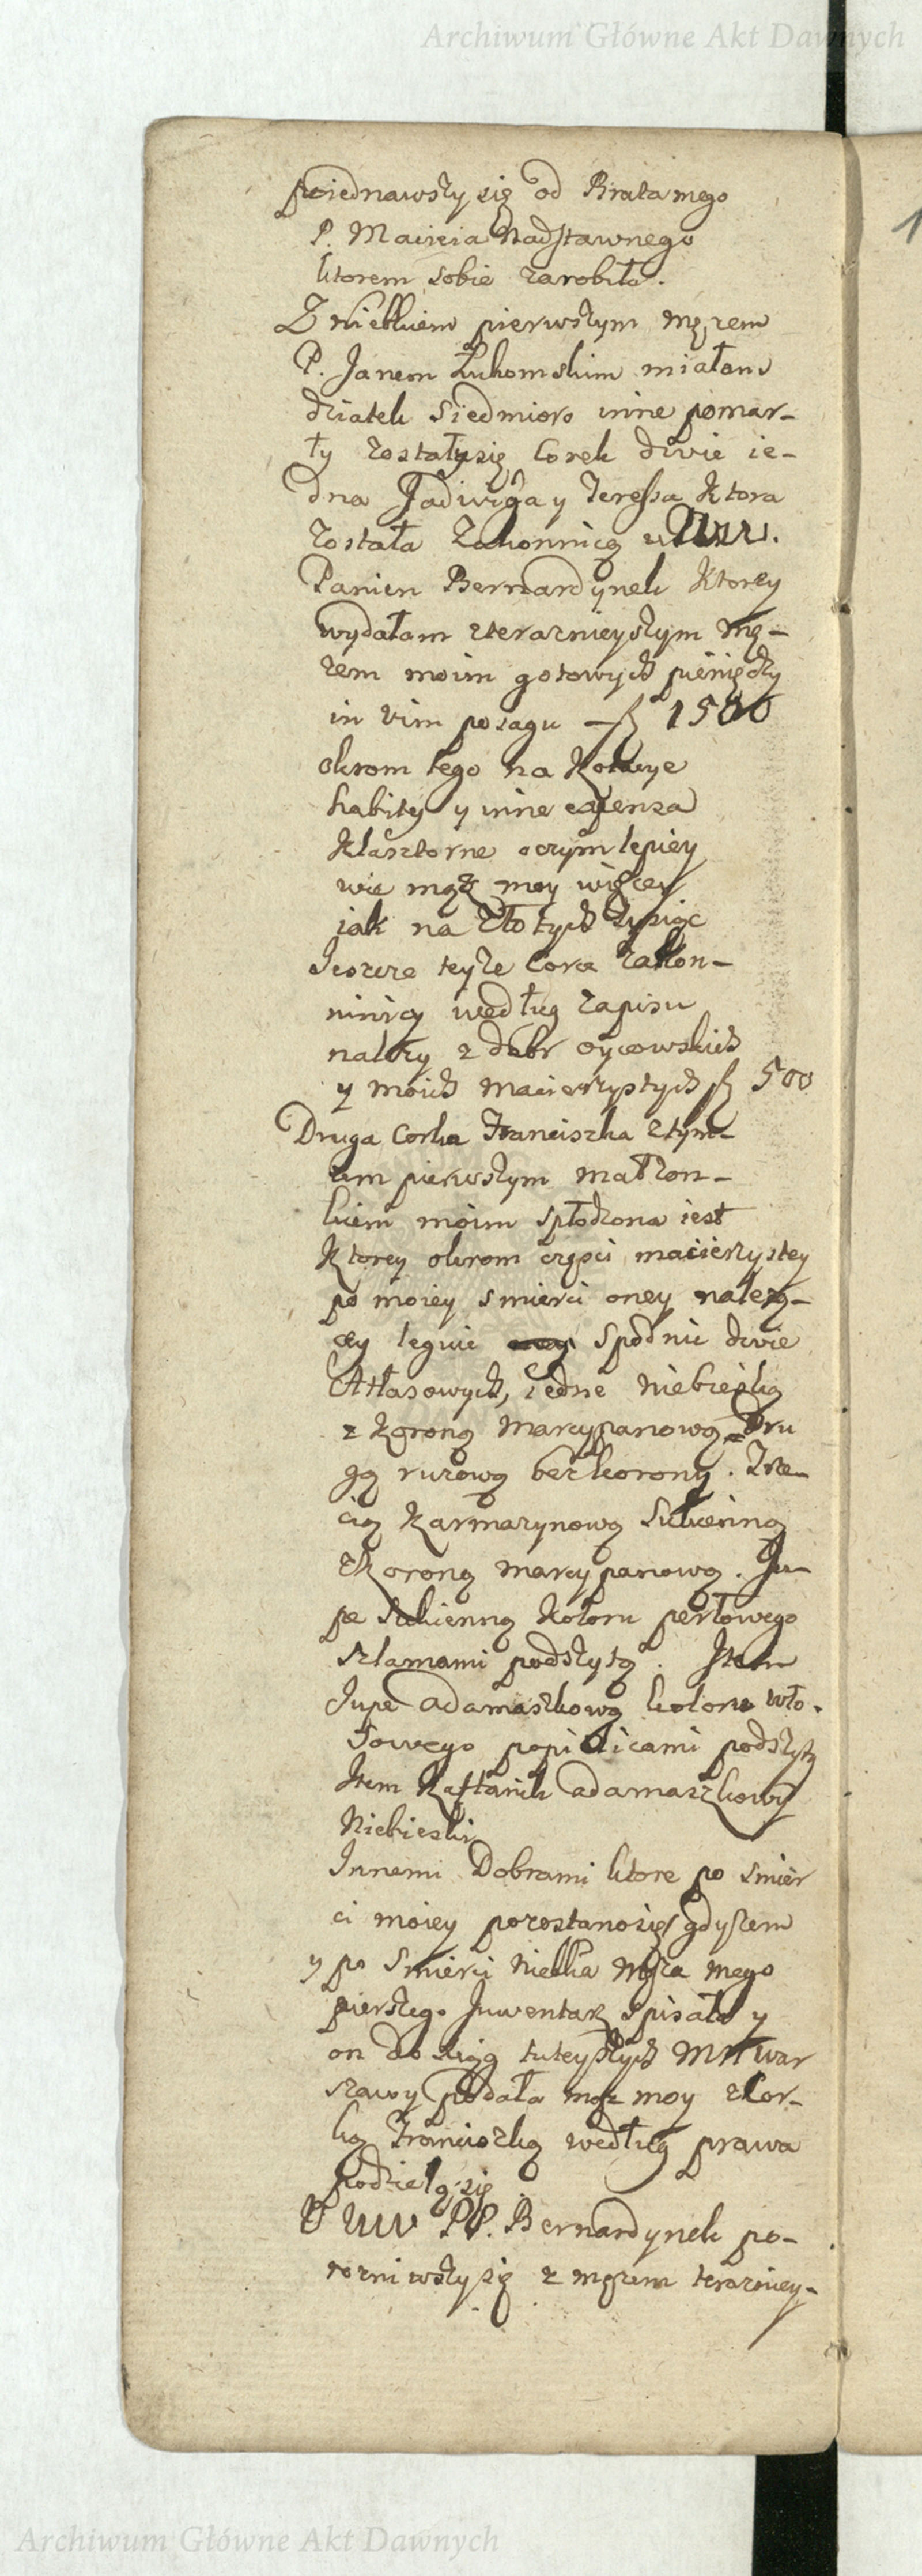 Archiwum Główne Akt Dawnych
poiednawszysię od Brata mego
P. Macieia Nadstawnego
ktorem sobie zarobiła.
Z niebkiem pierwszym mężem
P. Janem Łukomskim miałam
dziatek siedmioro inne pomar-
ły zostałysię Corek dwie ie-
dna Jadwiga y Teressa Ktora
została Zakonnicą u
Panien Bernardynek Ktorey
wydałam zteraznieyszym mę-
żem moim gotowych pieniędzy
in vim posagu — fl 1500
okrom tego na Kolacye
habity y inne expensa
Klasztorne o czym lepiey
wie mąż moy więcey
jak na Złotych tysiąc
Ieszcze teyże Corce zakon-
ninicy według zapisu
należy z dobr oycowskich
y moich macierzystych fl 500
Druga Corka Franciszka ztym-
em pierwszym małżon-
kiem moim spłodzona iest
Ktorey okrom części macierzystey
po moiey smierci oney należą-
cey leguie spodnic dwie
Atłasowych, iedne niebieską
z Koroną marcypanową Dru
gą rurową bez korony. Trze-
cią Karmazynową Sukienną
zKoroną marcypanową. Ju-
pe sukienną Koloru perłowego
szlamami podszytą. Item
Jupe adamaszkową koloru wło-
sowego popielicami podszytą
Item Kaftanik adamaszkowy
Niebieski
Innemi Dobrami ktore po smier
ci moiey pozostanąsię gdyżem
y po Smierci niebka Męża mego
pierszego Inwentarz spisała y
on do xiąg tuteyszych Mtt War
szawy podała mąż moy zCor-
ką Franciszką według prawa
podzielą się
U PP. Bernardynek po-
rozniwszysię z mężem teraźniey-
Archiwum Główne Akt Dawnych